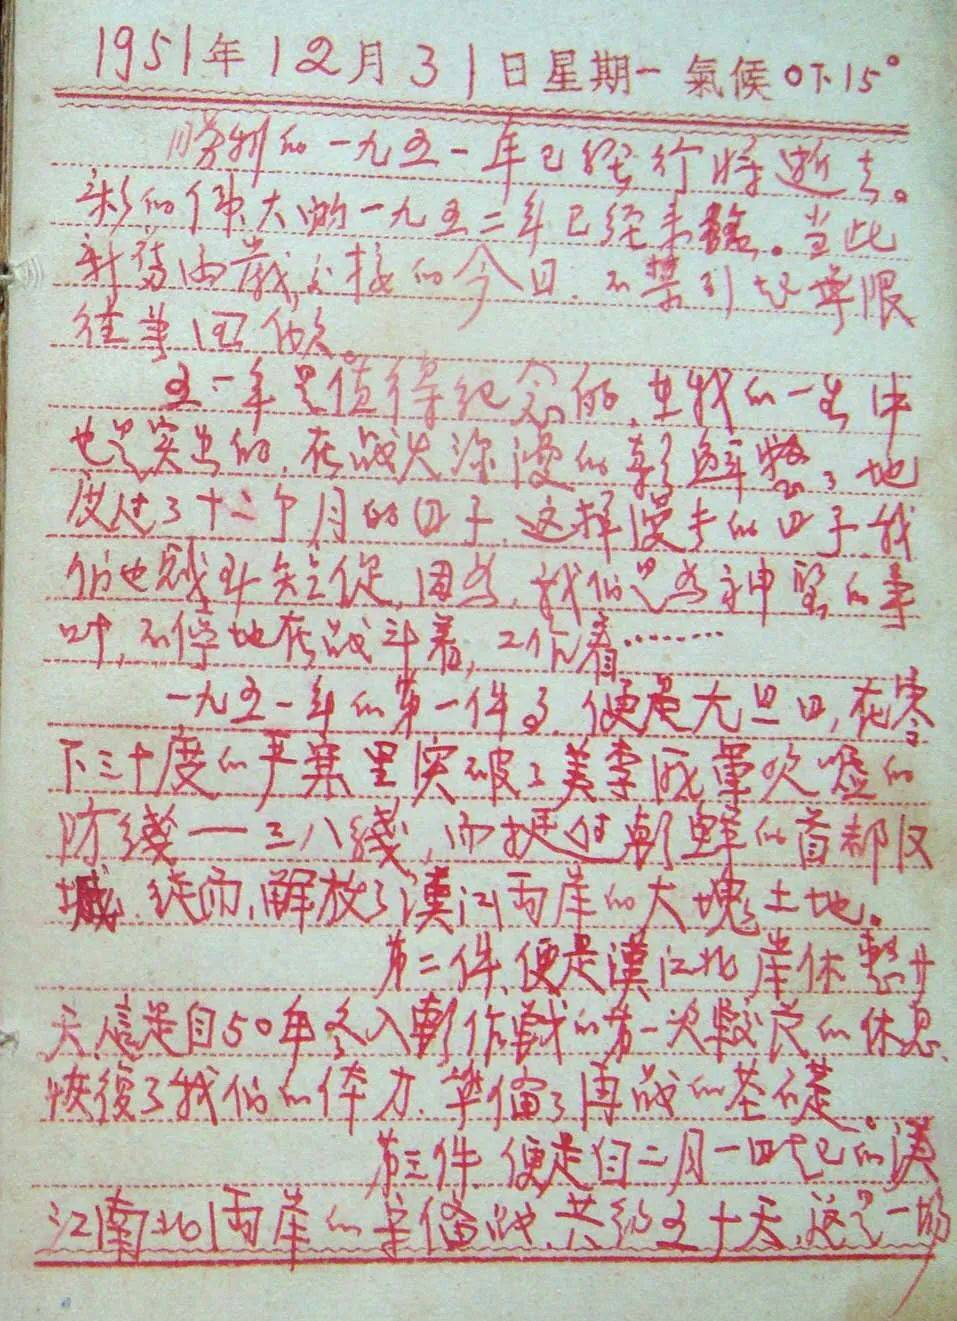 1951年12月31日星期一 氣候 0下15°
勝利的一九五一年已經行将逝去。
新的偉大的一九五二年已经来臨。当此
新舊两歲交接的今日.不禁引起無限
往事回憶。
五一年是值得纪念的,在我的一生中
也是突出的,在战火弥漫的朝鮮,地
度过了十二个月的日子,这样漫长的日子,我
们也短促,因为,我们是为神聖的事
叶,不停地在战斗着,工作着………
一九五一年的第一件事,便是元旦日,在零
下三十度的严寒里突破了美李匪軍吹嘘的
防綫——三八綫,而挺进朝鮮的首都汉
城.從而,解放了漢江两岸的大塊土地。
第二件,便是漢江北岸休整廿
天,這是自50年冬入朝作戰的第一次較長的休息,
恢復了我们的体力.準備了再战的基礎。
第三件,便是自二月一日起的漢
江南北両岸的守備战,共約五十天,这是一场